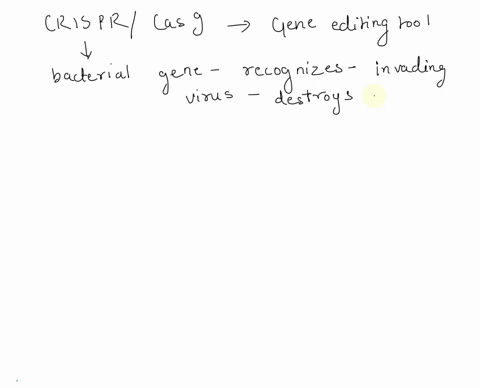 CRISPR/ Cas 9 → Gene editing tool
↓
bacterial gene - recognizes - invading
virus - destroys